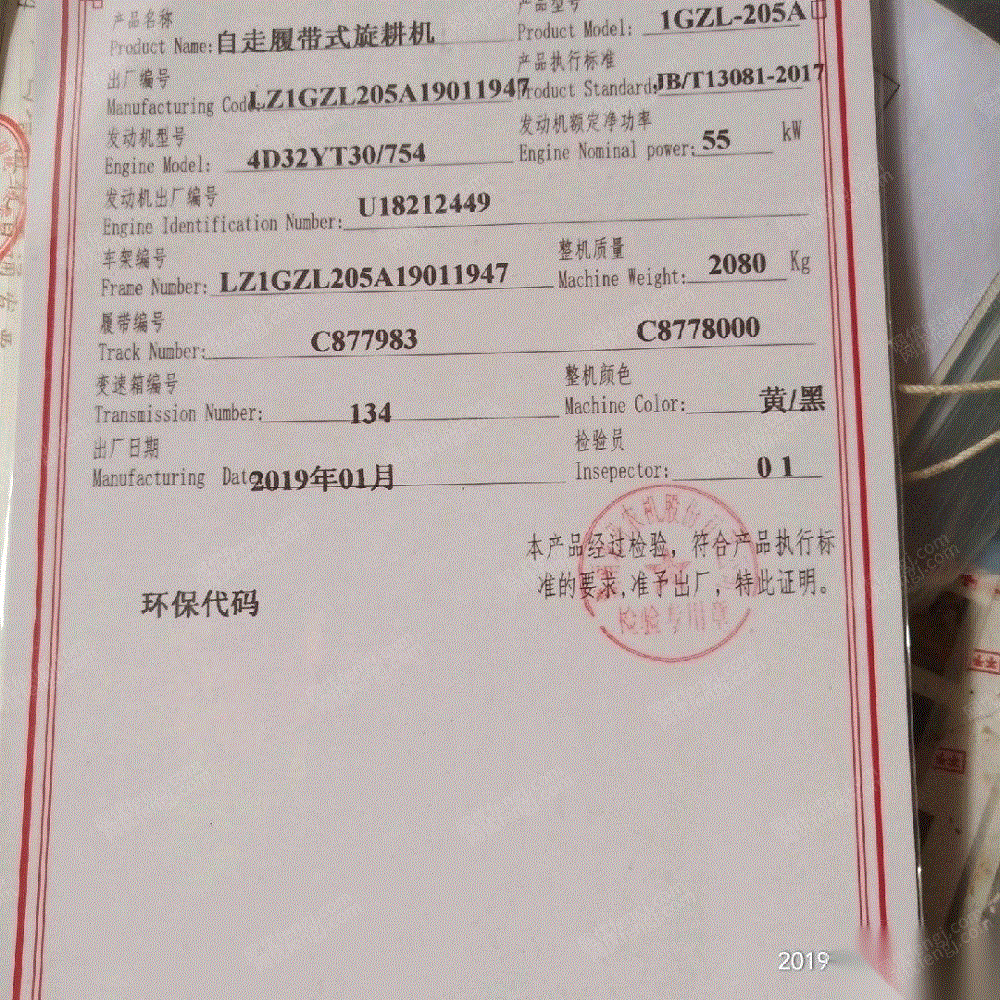 产品名称 产品型号
Product Name: 自走履带式旋耕机 Product Model: 1GZL-205A
出厂编号 产品执行标准
Manufacturing Code LZ1GZL205A19011947 Product Standard: JB/T13081-2017
发动机型号 发动机额定净功率
Engine Model: 4D32YT30/754 Engine Nominal power: 55 kW
发动机出厂编号
Engine Identification Number: U18212449
车架编号 整机质量
Frame Number: LZ1GZL205A19011947 Machine Weight: 2080 Kg
履带编号
Track Number: C877983 C8778000
变速箱编号 整机颜色
Transmission Number: 134 Machine Color: 黄/黑
出厂日期 检验员
Manufacturing Date 2019年01月 Insepector: 01
本产品经过检验，符合产品执行标
准的要求,准予出厂，特此证明。
检验专用章
环保代码
2019